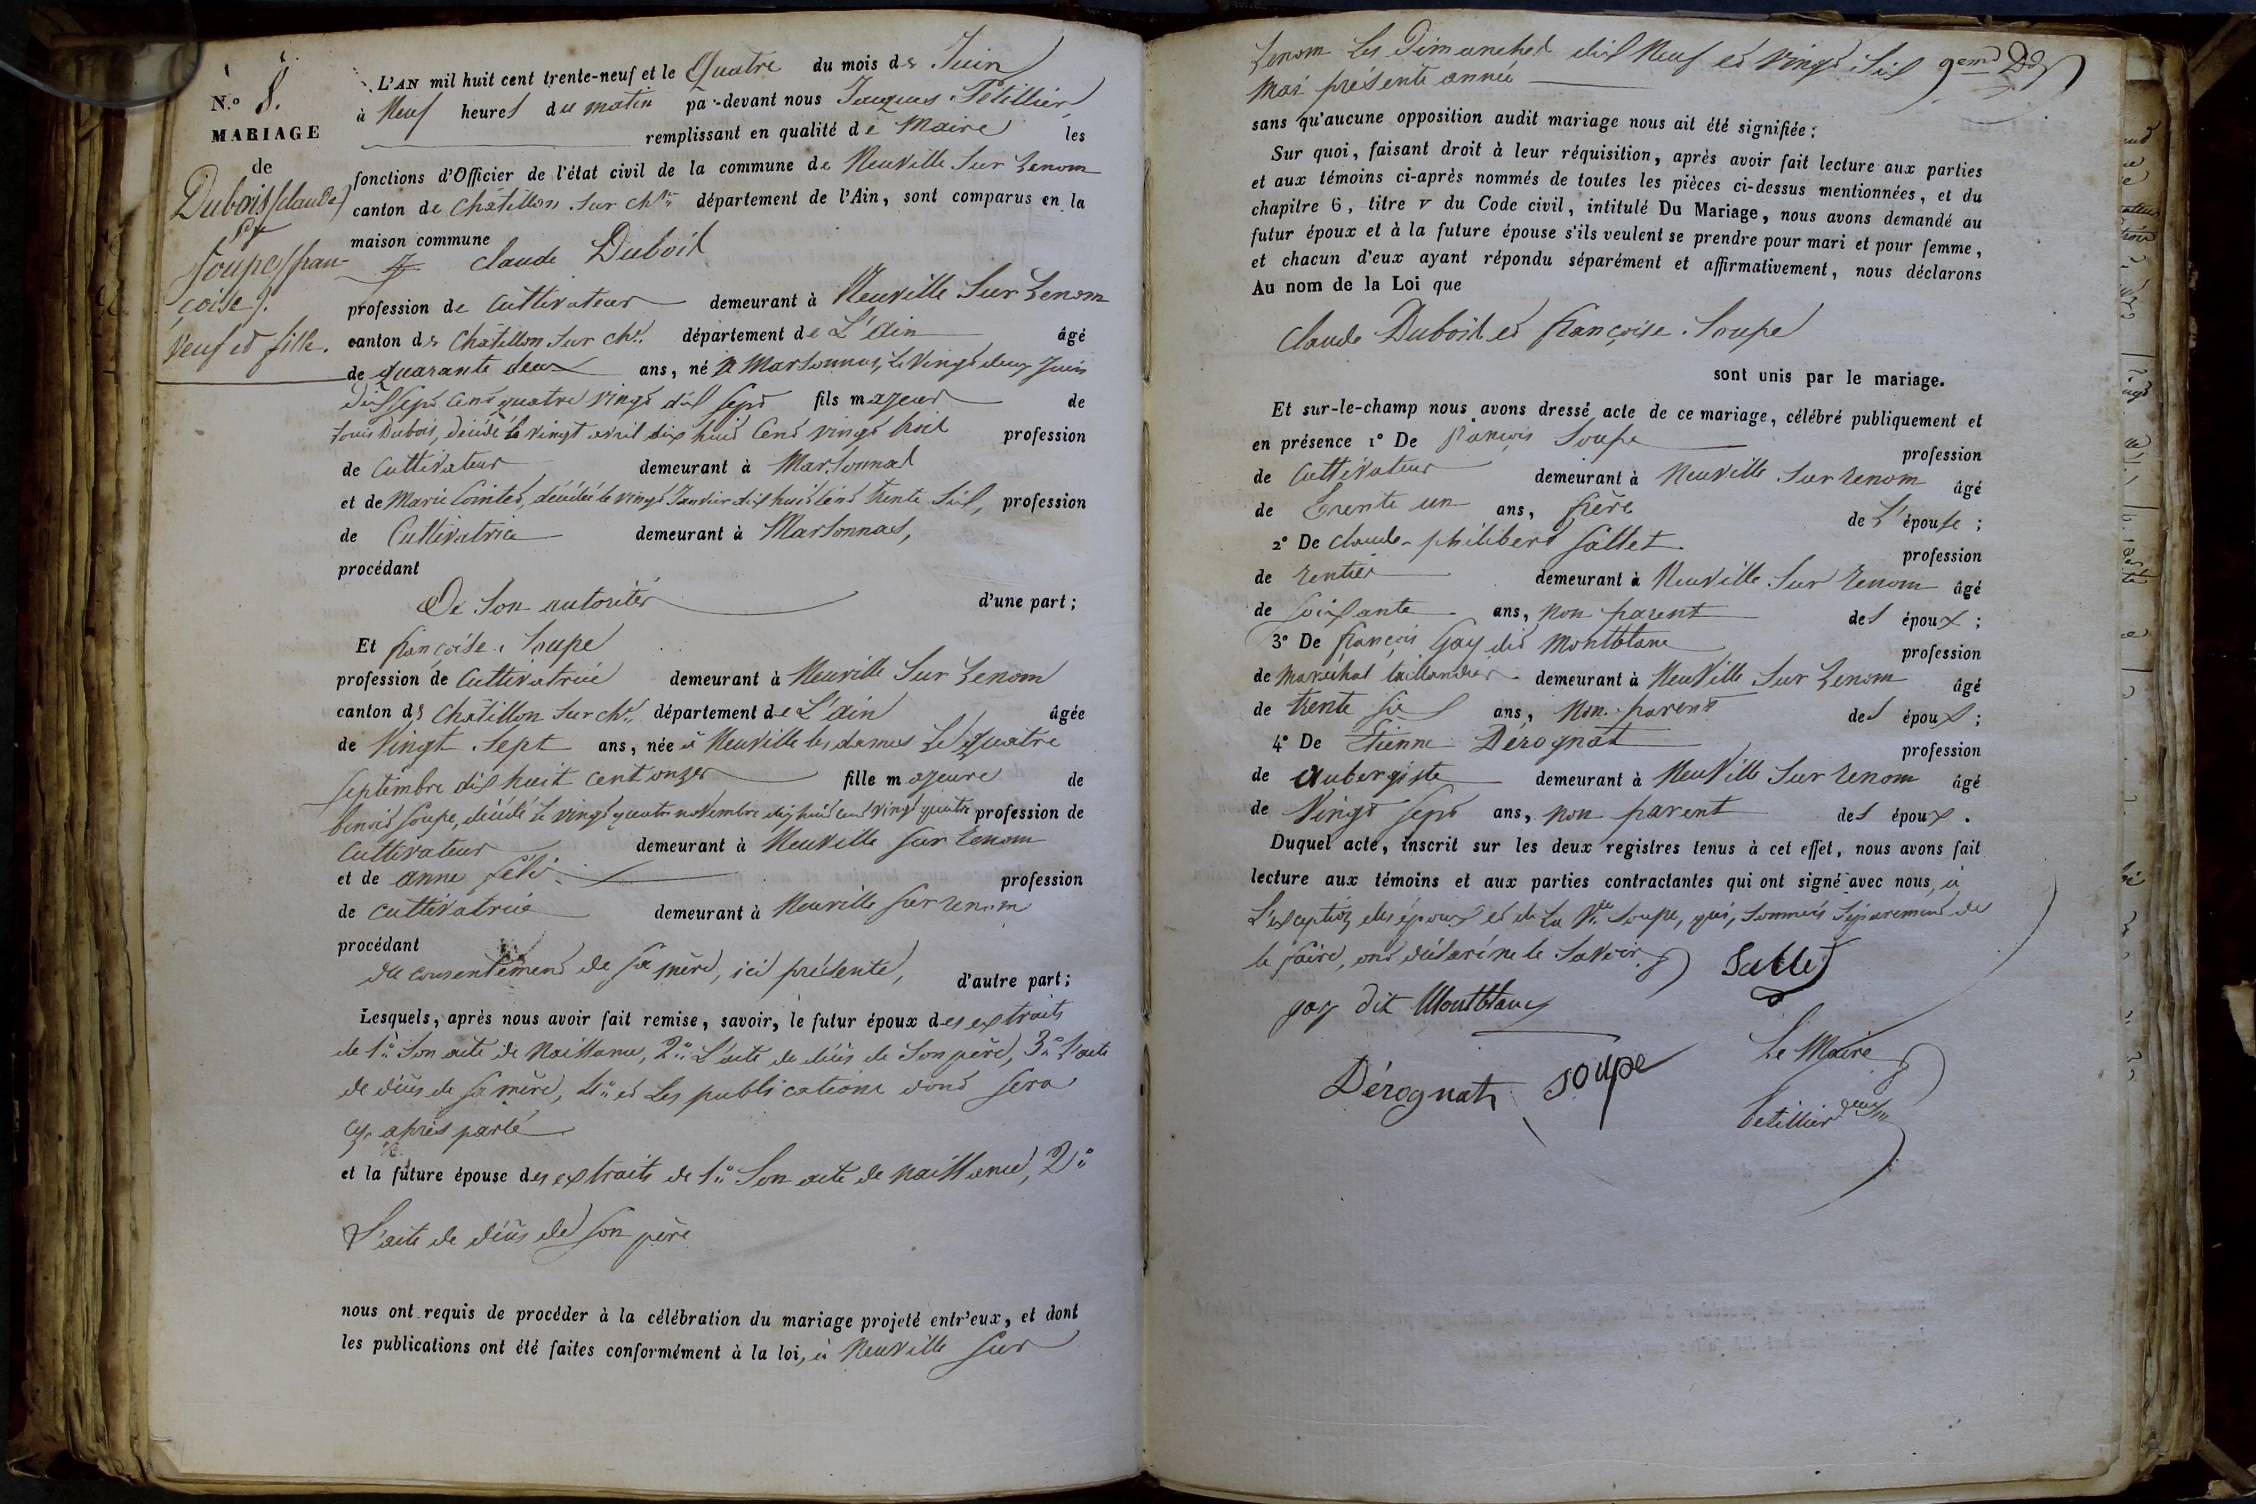 N.º 8.
MARIAGE
de
Dubois (claude)
et
Soupe (fran-
çoise).
Veuf et fille.
L'AN mil huit cent trente-neuf et le Quatre du mois de Juin
à Neuf heures du matin par-devant nous Jacques Tétillier,
remplissant en qualité de Maire les
fonctions d'Officier de l'état civil de la commune de Neuville Sur Renom
canton de Châtillon Sur Ch.ne département de l'Ain, sont comparus en la
maison commune
claude Dubois
profession de Cultivateur demeurant à Neuville Sur Renom
canton de Châtillon Sur Ch.ne département de L'ain âgé
de quarante deux ans, né à Marsonnas, le vingt deux Juin
dix Sept cent quatre vingt dix Sept fils majeur de
Louis Dubois, décédé le vingt avril dix huit cent vingt huit profession
de Cultivateur demeurant à Marsonnas
et de Marie Cointet, décédée le vingt Janvier dix huit cent trente Six, profession
de Cultivatrice demeurant à Marsonnas,
procédant
De Son autorité d'une part ;
Et françoise Soupe
profession de Cultivatrice demeurant à Neuville Sur Renom
canton de Châtillon Sur Ch.ne département de L'ain âgée
de Vingt Sept ans, née à Neuville les dames Le Quatre
Septembre dix huit cent onze fille majeure de
benoit Soupe, décédé le vingt quatre novembre dix huit cent vingt quatre profession de
Cultivateur demeurant à Neuville Sur Renom
et de anne profession
de cultivatrice demeurant à Neuville Sur Renom
procédant
du consentement de Sa mère, ici présente, d'autre part ;
Lesquels, après nous avoir fait remise, savoir, le futur époux des extraits
de 1.º Son acte de Naissance, 2.º L'acte de décès de Son père, 3.º L'acte
de décès de Sa mère, 4.º et Les publications dont Sera
cy-après parlé
et la future épouse des extraits de 1.º Son acte de naissance, 2.º
L'acte de décès de Son père
nous ont requis de procéder à la célébration du mariage projeté entr'eux, et dont
les publications ont été faites conformément à la loi, à Neuville Sur
Renom Les Dimanches dix Neuf et Vingt Six
Mai présente année
sans qu'aucune opposition audit mariage nous ait été signifiée ;
Sur quoi, faisant droit à leur réquisition, après avoir fait lecture aux parties
et aux témoins ci-après nommés de toutes les pièces ci-dessus mentionnées, et du
chapitre 6, titre v du Code civil, intitulé Du Mariage, nous avons demandé au
futur époux et à la future épouse s'ils veulent se prendre pour mari et pour femme,
et chacun d'eux ayant répondu séparément et affirmativement, nous déclarons
Au nom de la Loi que
Claude Dubois et françoise Soupe
sont unis par le mariage.
Et sur-le-champ nous avons dressé acte de ce mariage, célébré publiquement et
en présence 1º De françois Soupe profession
de Cultivateur demeurant à Neuville Sur Renom âgé
de Trente un ans, frère de L'épouse ;
2º De claude-philibert Sallet profession
de rentier demeurant à Neuville Sur Renom âgé
de Soixante ans, non parent des époux ;
3º De françois Gay dit Montblanc profession
de Maréchal taillandier demeurant à Neuville Sur Renom âgé
de trente Six ans, Non parent des époux ;
4º De Etienne Dérognat profession
de Aubergiste demeurant à Neuville Sur Renom âgé
de Vingt Sept ans, non parent des époux.
Duquel acte, inscrit sur les deux registres tenus à cet effet, nous avons fait
lecture aux témoins et aux parties contractantes qui ont signé avec nous, à
L'exception des époux et de La V.ve Soupe, qui, Sommés Séparément de
le faire, ont déclaré ne le Savoir
Sallet
gay dit Montblanc
Le Maire
Dérognat Soupe
Tetillier